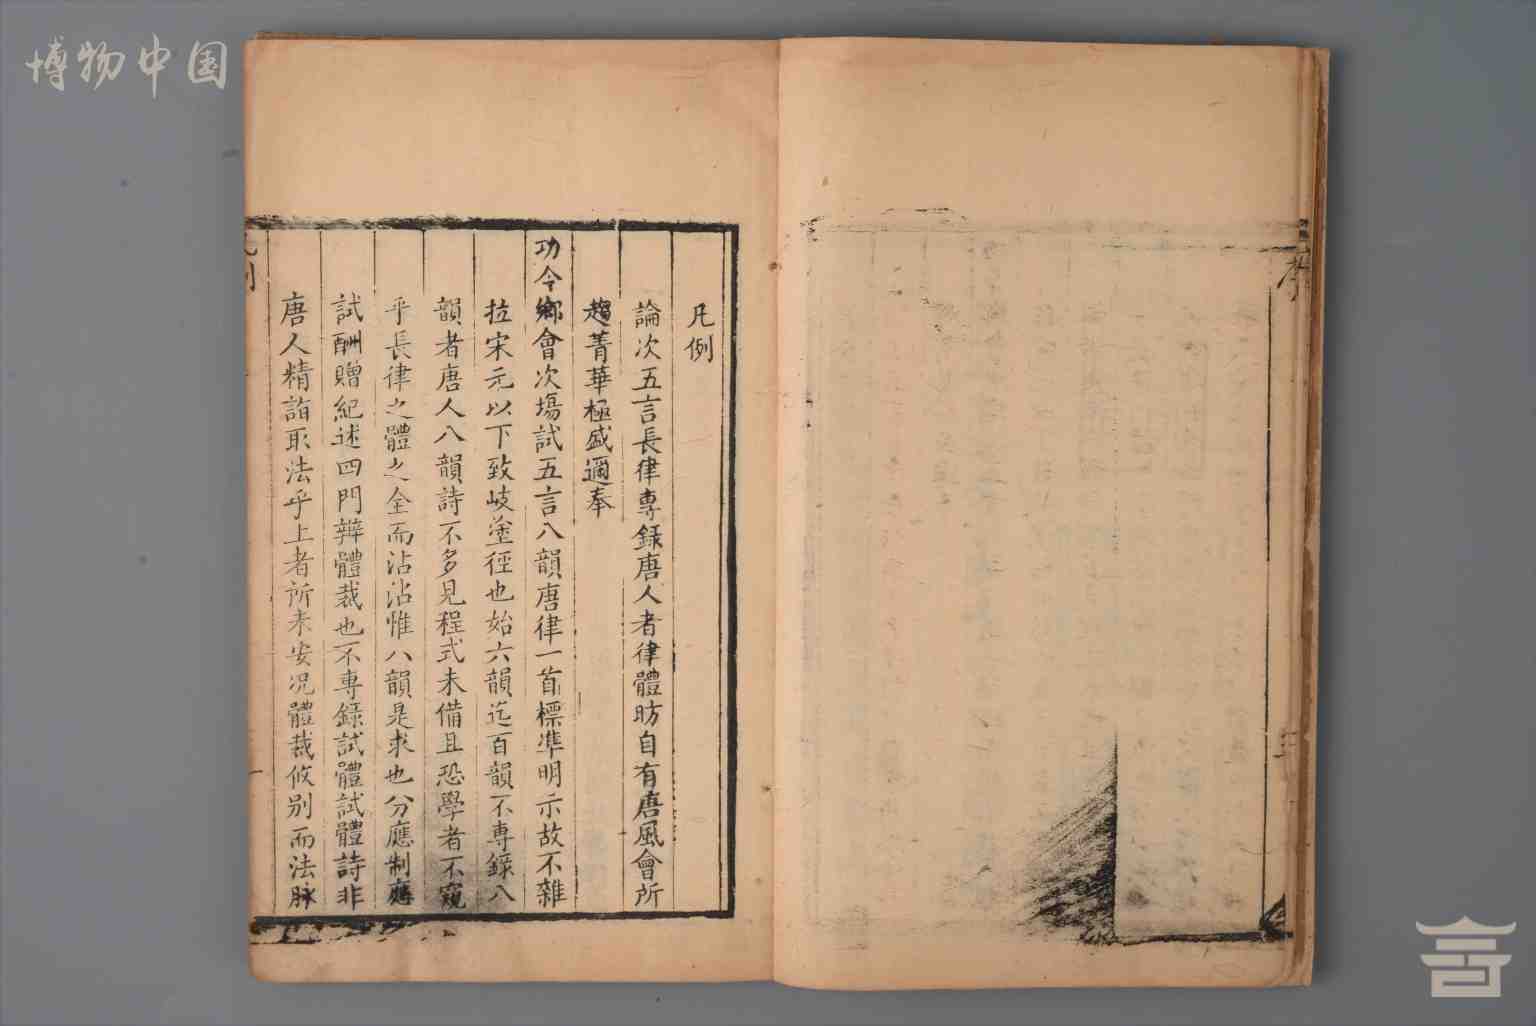 博物中国
凡例
論次五言長律專錄唐人者律體昉自有唐風會所
趨菁華極盛邇奉
功令鄉會次塲試五言八韻唐律一首標準明示故不雜
拉宋元以下致岐塗徑也始六韻迄百韻不專錄八
韻者唐人八韻詩不多見程式未備且恐學者不窺
乎長律之體之全而沾沾惟八韻是求也分應制應
試酬贈紀述四門辨體裁也不專錄試體試體詩非
唐人精詣取法乎上者所未安况體裁攸别而法脉